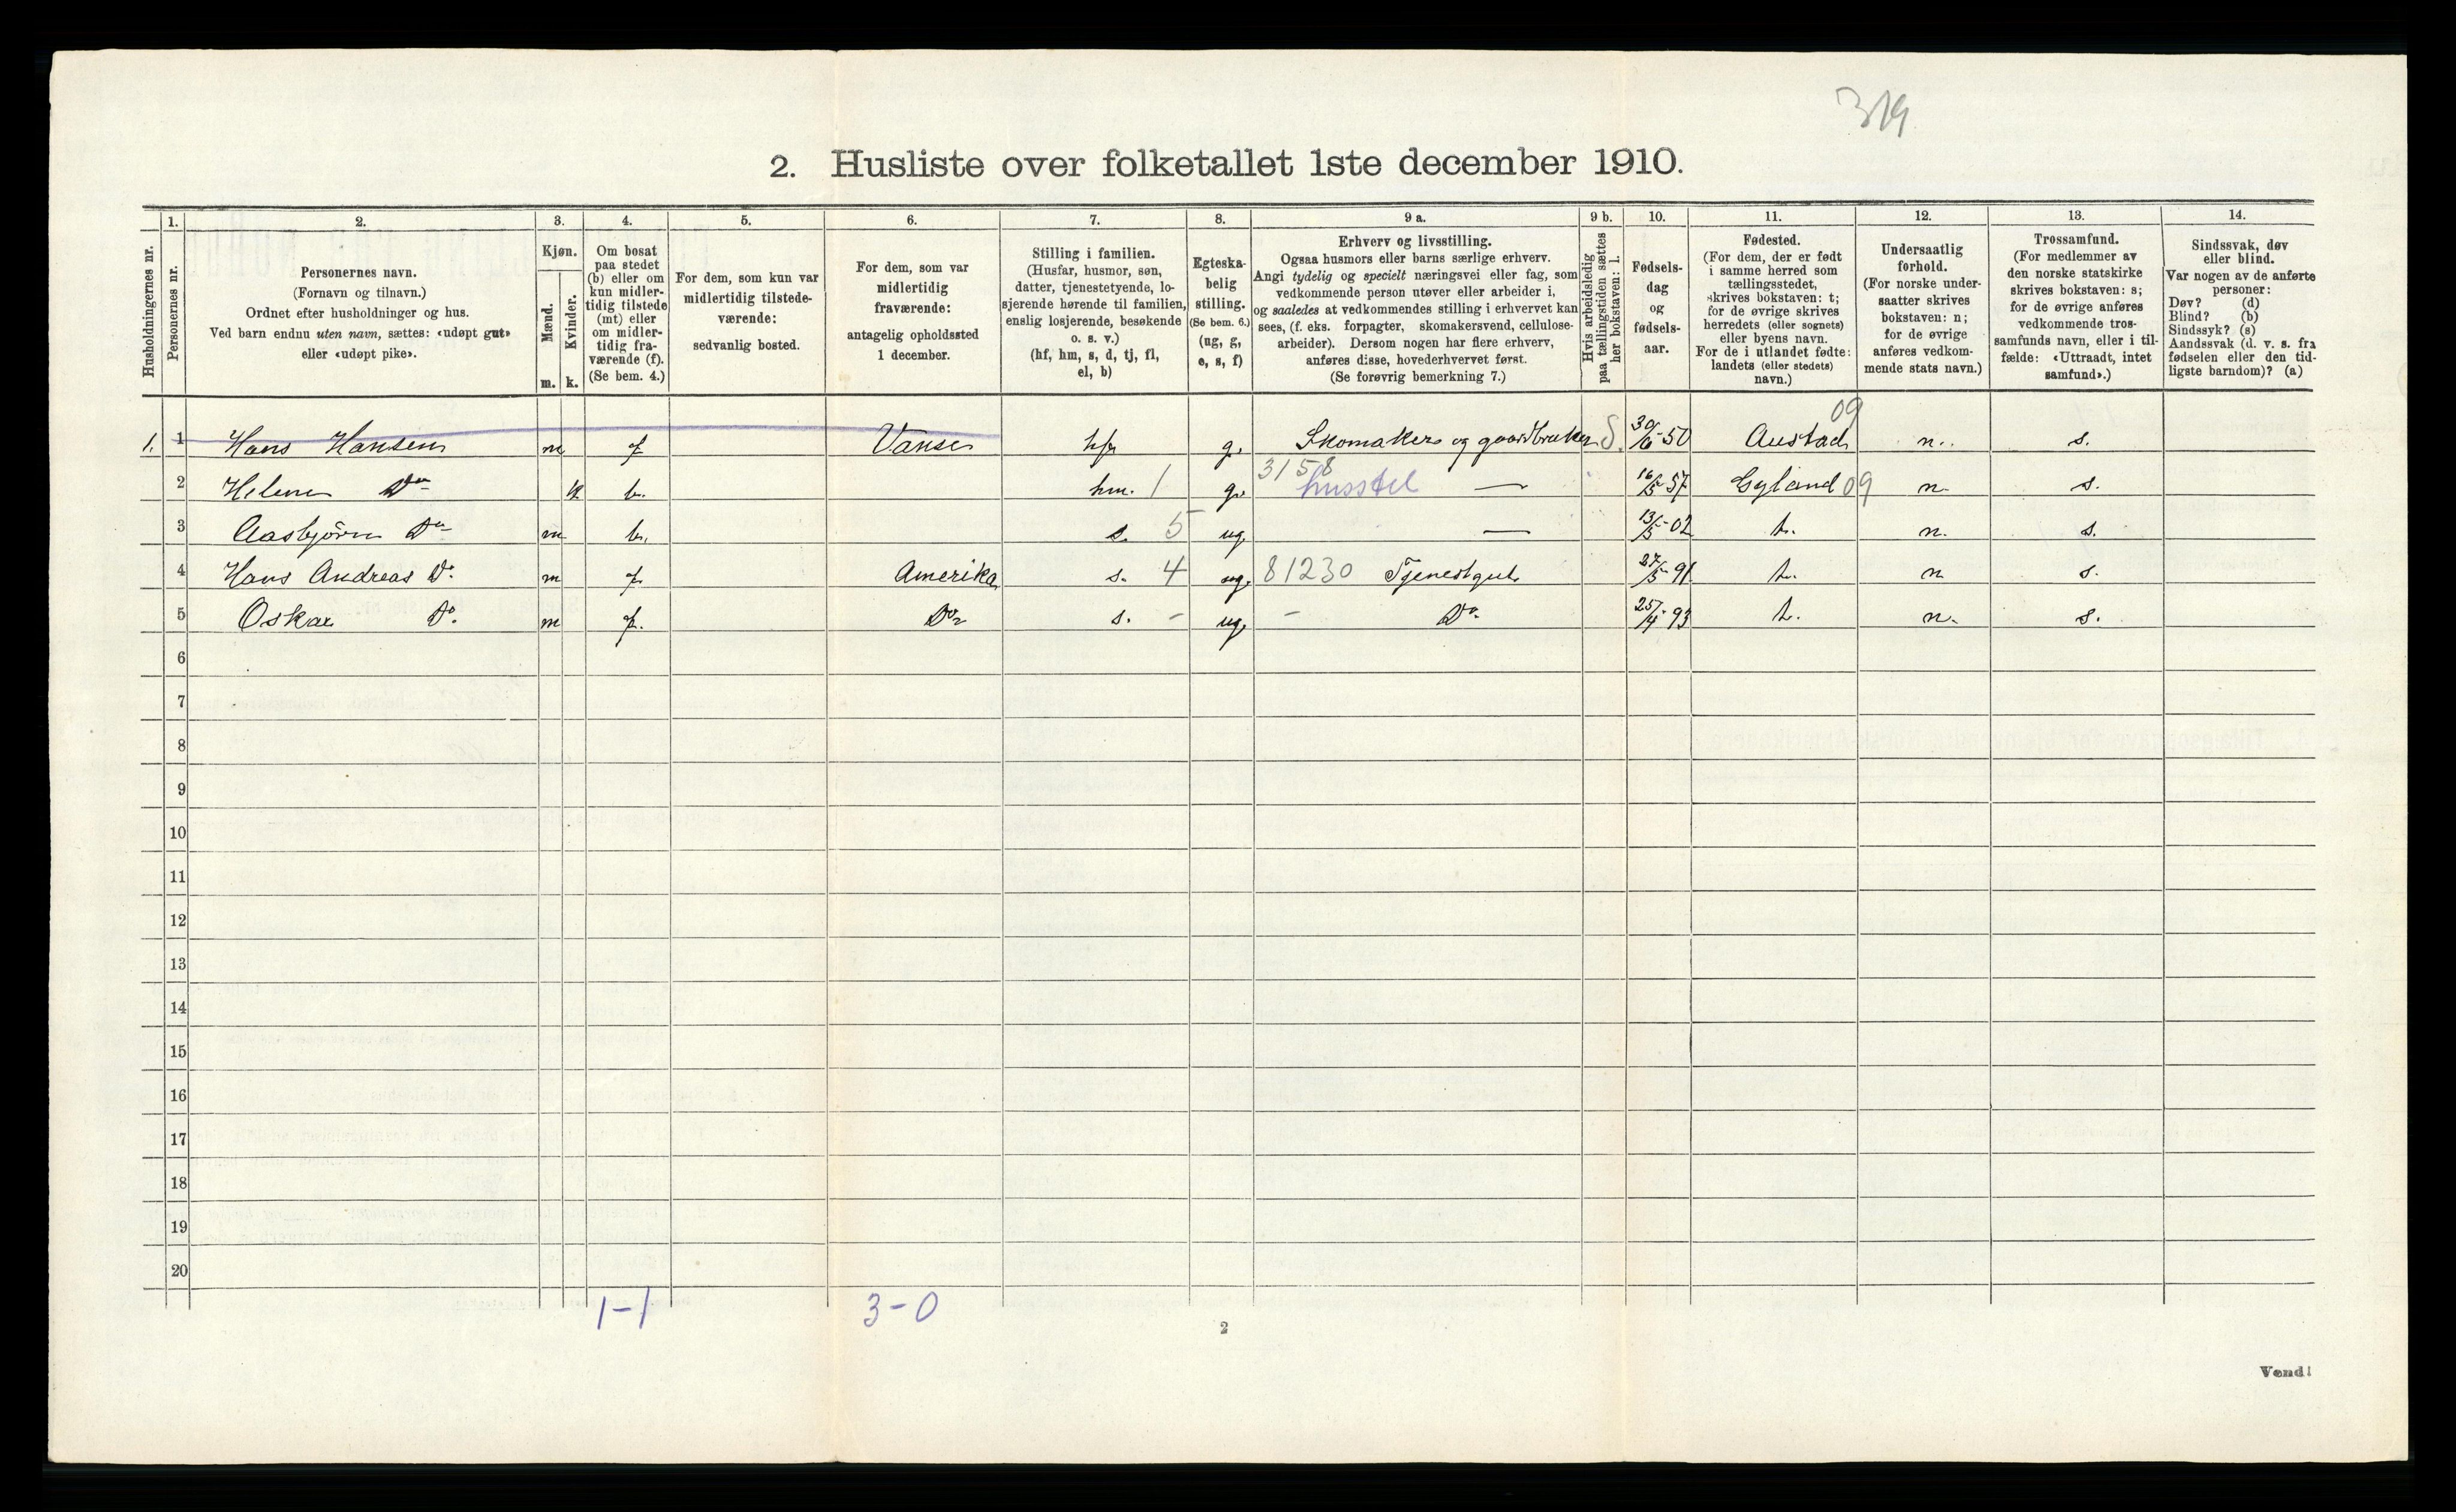 319
2. Husliste over folketallet 1ste december 1910.
Husholdningernes nr.
1.
Personernes nr.
2.
Personernes navn.
(Fornavn og tilnavn.)
Ordnet efter husholdninger og hus.
Ved barn endnu uten navn, sættes: «udøpt gut»
eller «udøpt pike».
3.
Kjøn.
Mænd.
Kvinder.
m. k.
4.
Om bosat
paa stedet
(b) eller om
kun midler-
tidig tilstede
(mt) eller
om midler-
tidig fra-
værende (f).
(Se bem. 4.)
5.
For dem, som kun var
midlertidig tilstede-
værende:
sedvanlig bosted.
6.
For dem, som var
midlertidig
fraværende:
antagelig opholdssted
1 december.
7.
Stilling i familien.
(Husfar, husmor, søn,
datter, tjenestetyende, lo-
sjerende hørende til familien,
enslig losjerende, besøkende
o. s. v.)
(hf, hm, s, d, tj, fl,
el, b)
8.
Egteska-
belig
stilling.
(Se bem. 6.)
(ug, g,
e, s, f)
9 a.
Erhverv og livsstilling.
Ogsaa husmors eller barns særlige erhverv.
Angi tydelig og specielt næringsvei eller fag, som
vedkommende person utøver eller arbeider i,
og saaledes at vedkommendes stilling i erhvervet kan
sees, (f. eks. forpagter, skomakersvend, cellulose-
arbeider). Dersom nogen har flere erhverv,
anføres disse, hovederhvervet først.
(Se forøvrig bemerkning 7.)
9 b.
Hvis arbeidsledig
paa tællingstiden sættes
her bokstaven: l.
10.
Fødsels-
dag
og
fødsels-
aar.
11.
Fødested.
(For dem, der er født
i samme herred som
tællingsstedet,
skrives bokstaven: t;
for de øvrige skrives
herredets (eller sognets)
eller byens navn.
For de i utlandet fødte:
landets (eller stedets)
navn.)
12.
Undersaatlig
forhold.
(For norske under-
saatter skrives
bokstaven: n;
for de øvrige
anføres vedkom-
mende stats navn.)
13.
Trossamfund.
(For medlemmer av
den norske statskirke
skrives bokstaven: s;
for de øvrige anføres
vedkommende tros-
samfunds navn, eller i til-
fælde: «Uttraadt, intet
samfund».)
14.
Sindssvak, døv
eller blind.
Var nogen av de anførte
personer:
Døv? (d)
Blind? (b)
Sindssyk? (s)
Aandssvak (d. v. s. fra
fødselen eller den tid-
ligste barndom)? (a)
09
1. 1 Hans Hansen m f Vanse hf g. Skomaker og gaardbruker S. 30/6-50 Austad n. s.
3158
2 Helene Do k b. hm. 1 g. husstel — 16/5-57 Gyland 09 n. s.
3 Aasbjørn Do m b. s. 5 ug. — 13/5-02 t. n. s.
4 Hans Andreas Do. m f. Amerika s. 4 ug. 81230 Tjenestgut 27/5-91 t. n s.
5 Oskar Do. m f. Do s. - ug. - Do. 25/4-93 t. n. s.
6
7
8
9
10
11
12
13
14
15
16
17
18
19
20
1-1 3-0
2
Vend!